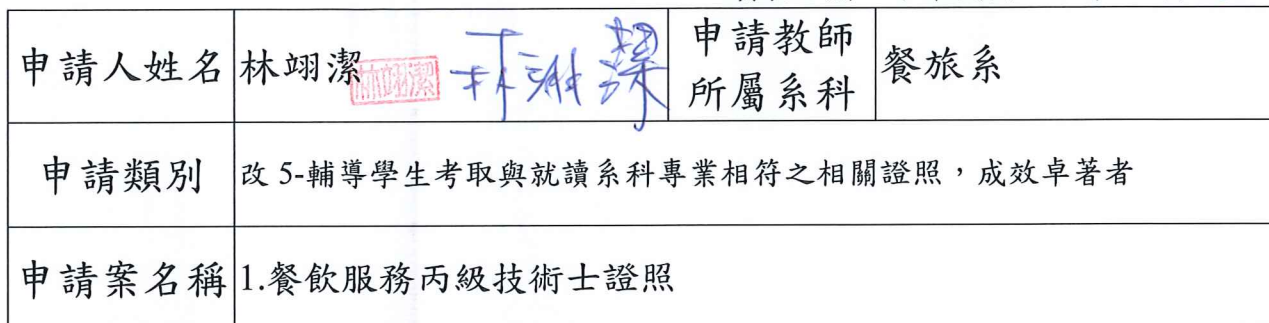 申請人姓名 林翊潔 林翊潔 林翊潔 申請教師所屬系科 餐旅系
申請類別 改 5-輔導學生考取與就讀系科專業相符之相關證照，成效卓著者
申請案名稱 1.餐飲服務丙級技術士證照